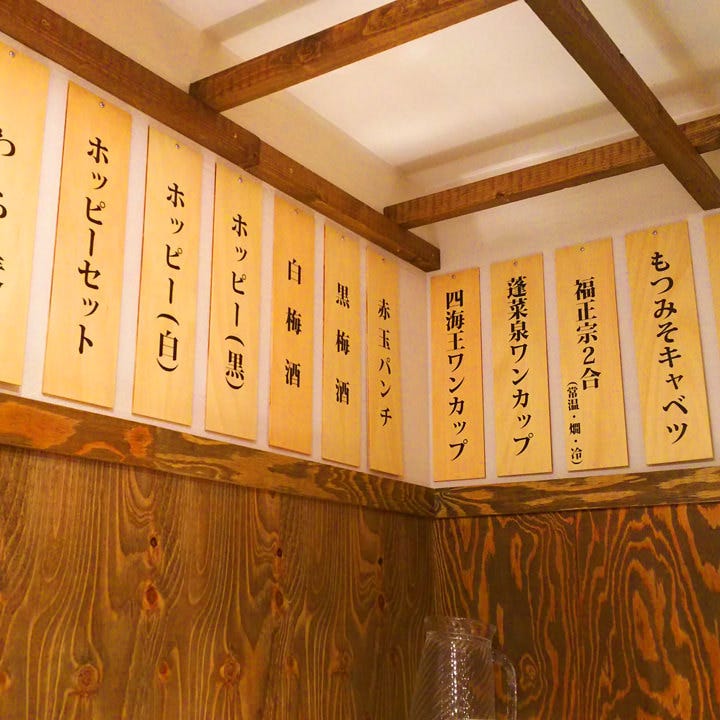 もつみそキャベツ
福正宗2合
(常温・燗・冷)
蓬莱泉ワンカップ
四海王ワンカップ
赤玉パンチ
黒梅酒
白梅酒
ホッピー(黒)
ホッピー(白)
ホッピーセット